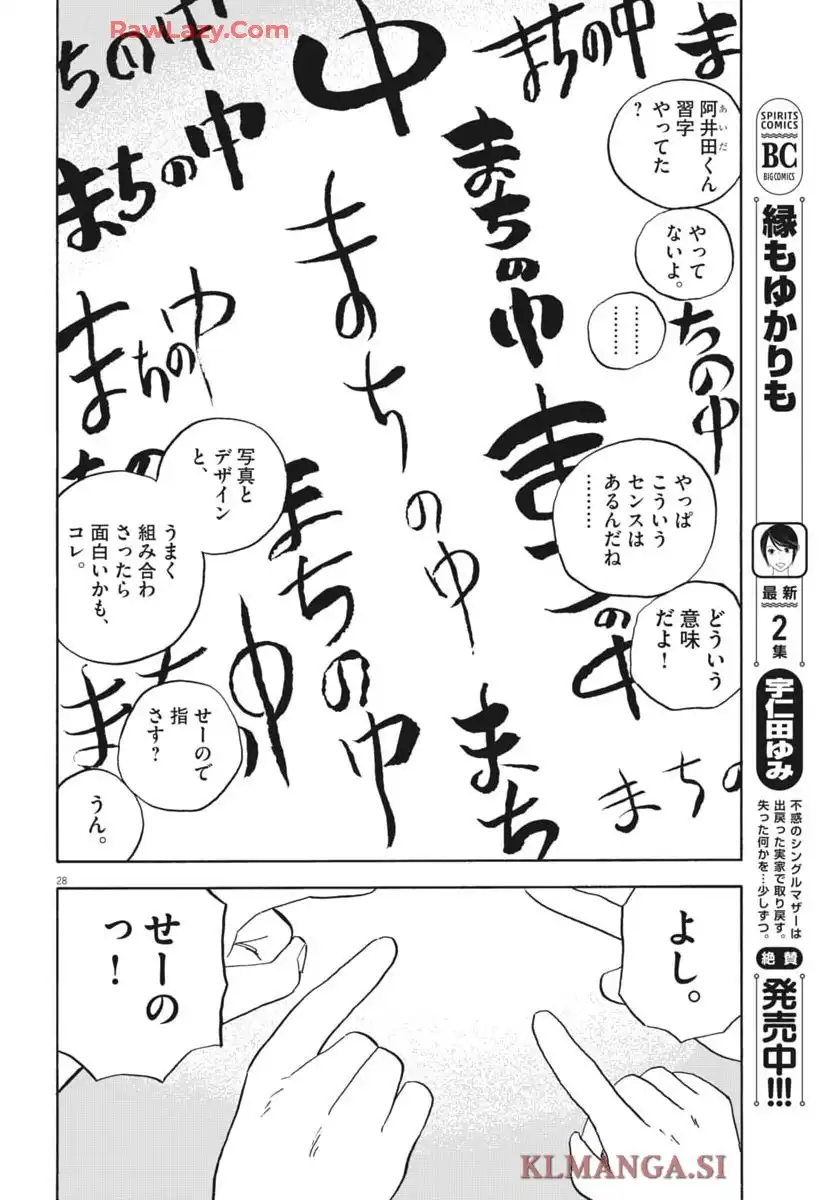 RawLazy.Com
まちの中
まちの中
ま
まちの中
まちの中
まちの中
まちの中
まちの中
まちの中
まちの中
まち
まちの
阿井田くん
あいだ
習字
やってた
?
やって
ないよ。
………
やっぱ
こういう
センスは
あるんだね
………
どういう
意味
だよ!
写真と
デザイン
と、
うまく
組み合わ
さったら
面白いかも、
コレ。
せーので
指
さす?
うん。
28
よし。
せーの
っ!
SPIRITS
COMICS
BC
BIG COMICS
縁もゆかりも
最新
2
集
宇仁田ゆみ
不惑のシングルマザーは
出戻った実家で取り戻す。
失った何かを…少しずつ。
絶賛
発売中!!!
KLMANGA.SI